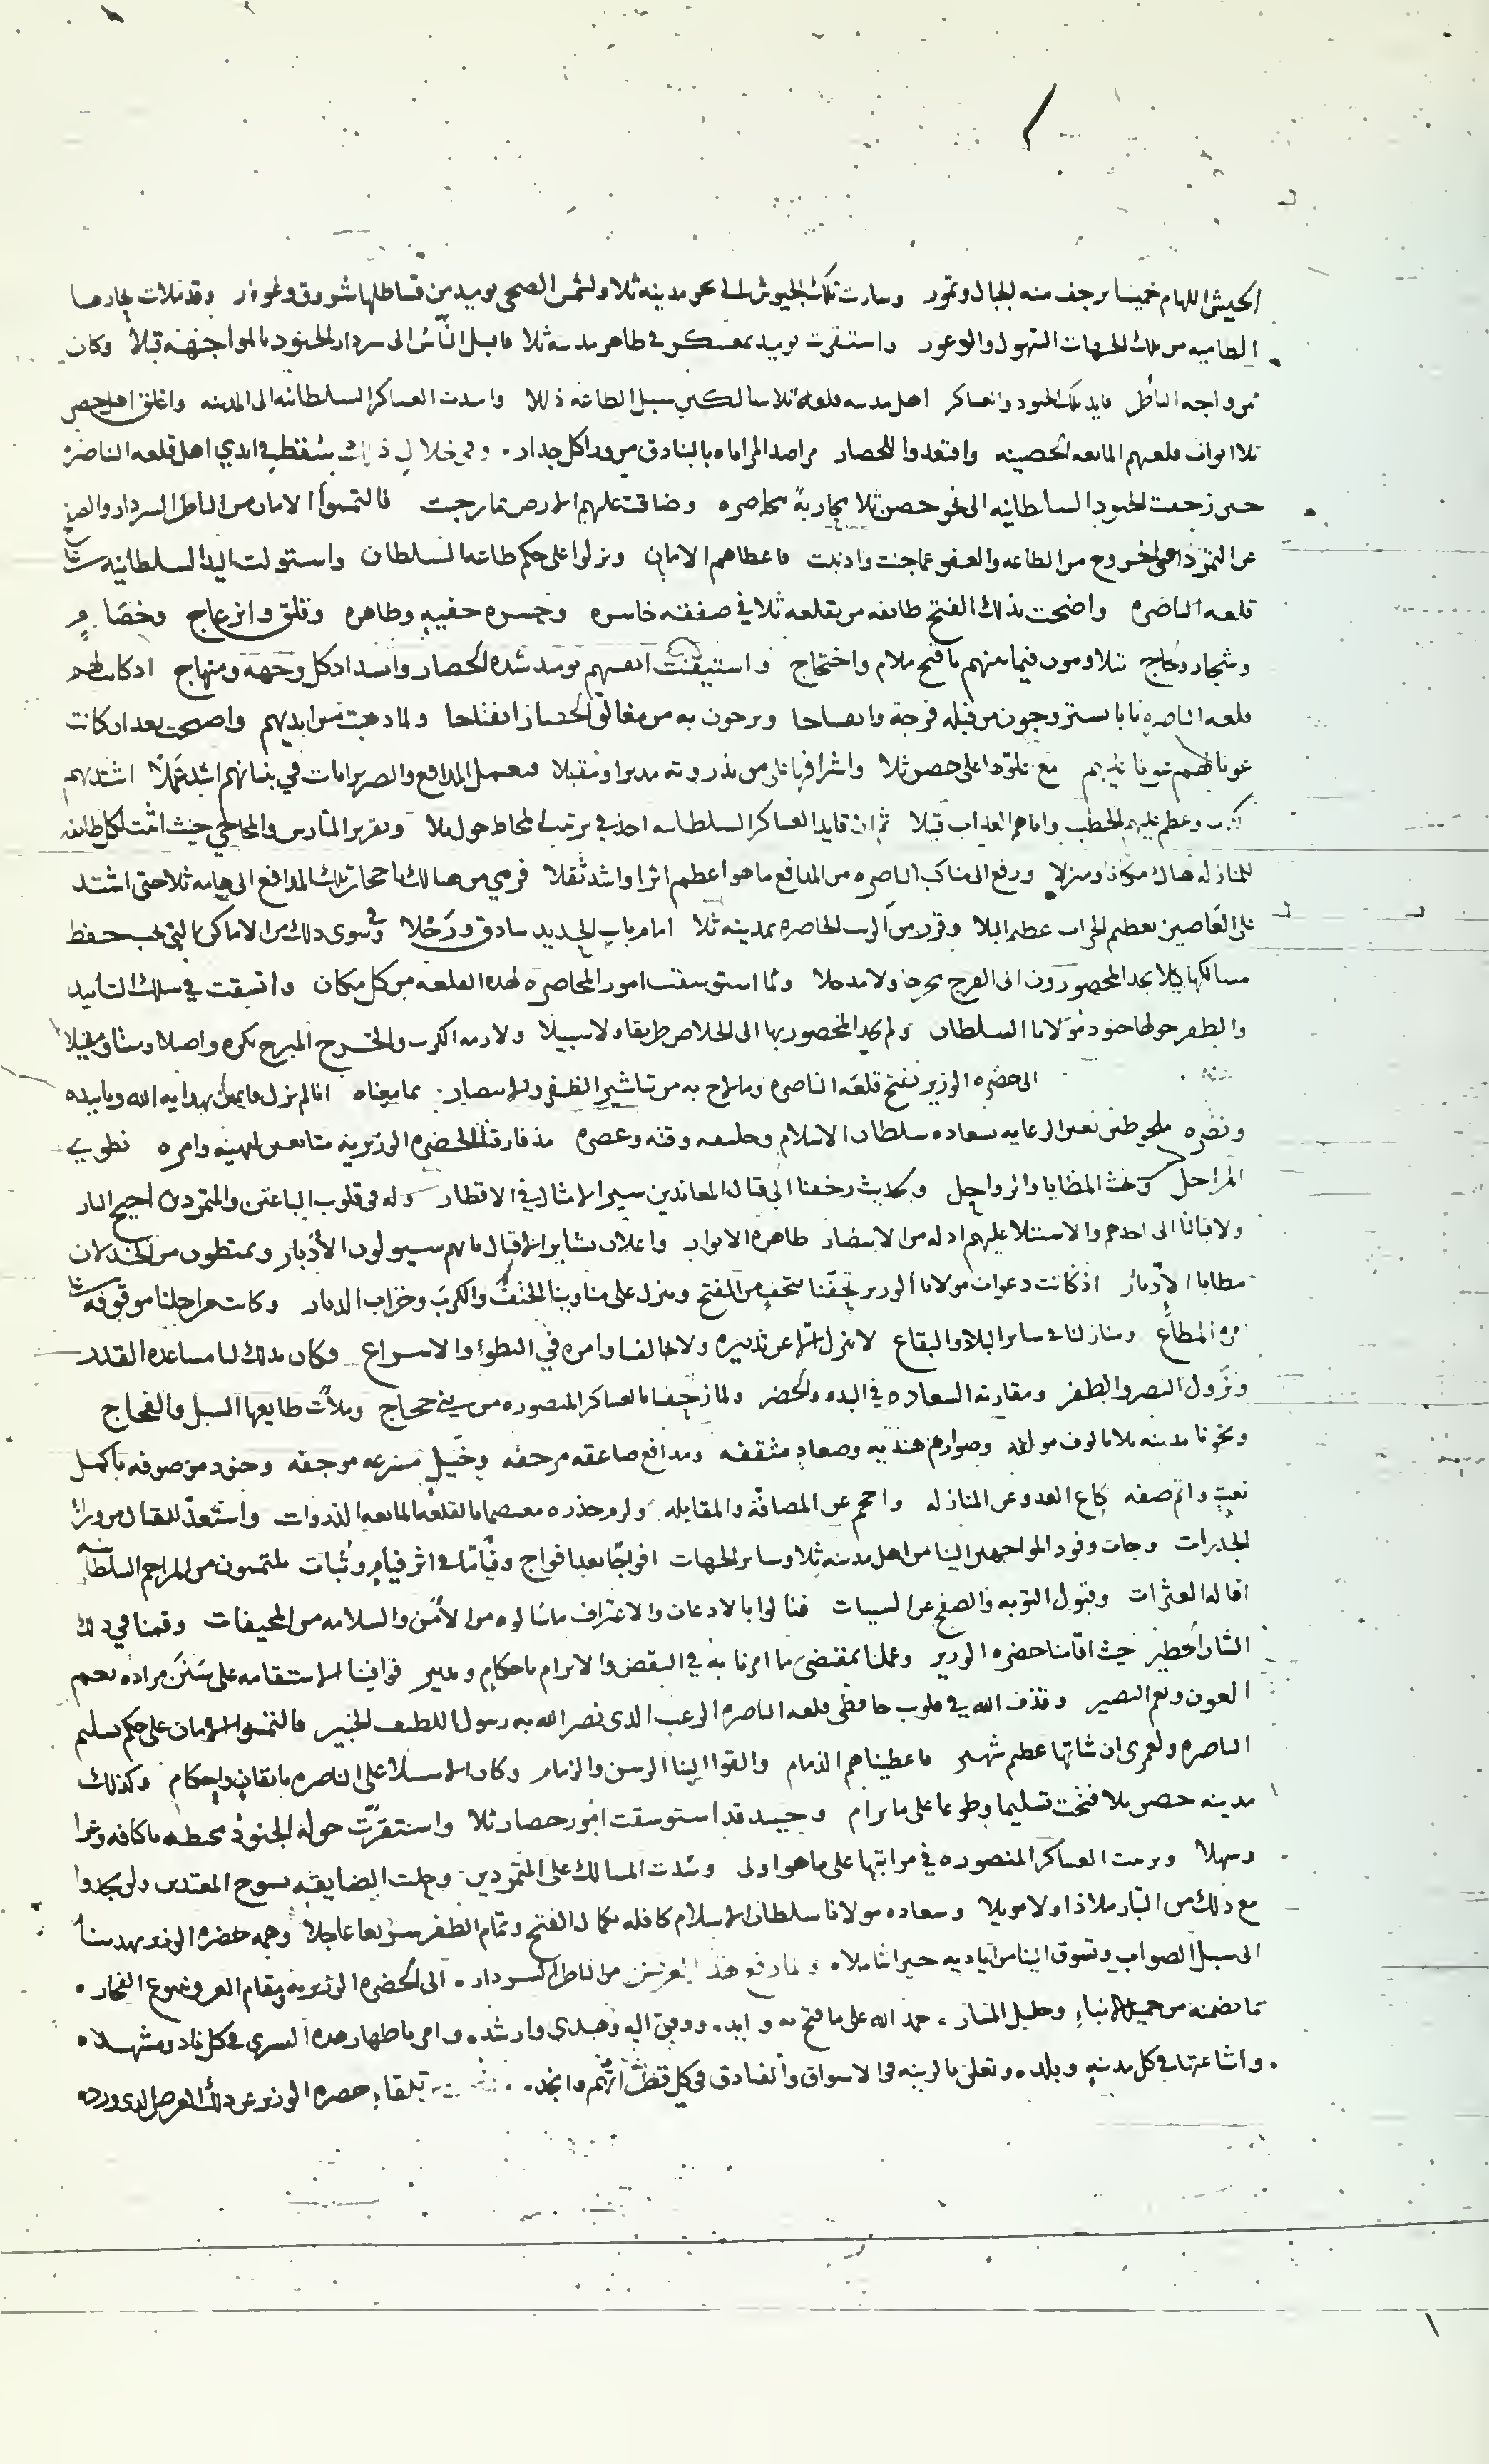 الجيش اللهام خميسا ترجف منه الجبال وتمور وسارت تلك الجيوش الى نحو مدينه ثلا ولشمس الضحى يوميد من قساطلها شروق وغوور وقد ملات بحارها
الطاميه من تلك الجهات السهول والوعور واستقرت يوميد بمعسكر في ظاهر مدينه ثلا فاقبل الناس الى سردار الجنود بالمواجهه قبلا وكان
ممن واجه الناظر قايد تلك الجنود والعساكر اهل مدينه قلعه ثلا سالكين سبل الطاعه ذللا واسدت العساكر السلطانيه الى المدينه واغلق اهل حصن
ثلا ابواب قلعتهم المانعه الحصينه واقتعدوا للحصار مراصد المراماه بالبنادق من ورا كل جدار. وفي خلال ذلك سقط في ايدي اهل قلعه الناصره
حين زحفت الجنود السلطانيه الى نحو حصن ثلا محاربة محاصره وضاقت عليهم الارض بما رحبت فالتمسوا الامان من الناظر السردار والصفح
عن التمرد والخروج من الطاعه والعفو عما جنت واذنبت فاعطاهم الامان ونزلوا على حكم طاعه السلطان واستولت اليد السلطانيه على
قلعه الناصره واضحت بذلك الفتح طايفه من بقلعه ثلا في صفقه خاسره وخسره خفيه وظاهره وقلق وانزعاج وخصام
وشجار ولجاج يتلاومون فيما بينهم باقبح ملام واحتجاج واستيقنت انفسهم يوميد شده الحصار وانسداد كل وجهه ومنهاج اذ كانت لهم
قلعه الناصره بابا يستروحون من قبله فرجة وانفساحا ويرجون به من مغالق الحصار انفتاحا ولما ذهبت من ايديهم واصبحت بعد ان كانت
عونا لهم عونا عليهم مع علوها على حصن ثلا واشرافها على من بذروته مدبرا ومقبلا فتعمل المدافع والضربزانات في بنيانهم اشد عملا اشتد بهم
الكرب وعظم عليهم الخطب واتاهم العذاب قبلا ثم ان قايد العساكر السلطانيه اخذ في ترتيب المحاط حول ثلا وتقرير المتارس والمحاجي حيث اثبت لكل طايفه
للمنازله هناك مكانا ومنزلا ورفع الى مناكب الناصره من المدافع ما هو اعظم اثرا واشد ثقلا فرمي من هنالك باحجار تلك المدافع الى هامه ثلا حتى اشتد
على القاصين بعظيم الخراب عظيم البلا وقرر من الرتب المحاصره بمدينه ثلا امام باب الحديد بيادق ورجلا وفي سوى ذلك من الاماكن التي يجب حفظ
مسالكها كيلا يجد المحصورون الى الفرج مخرجا ولا مدخلا ولما استوسقت امور المحاصره لهذه القلعه من كل مكان واتسقت في سلك التاييد
والظفر حولها جنود مولانا السلطان ولم يجد المحصور بها الى الخلاص طريقا ولا سبيلا ولازمه الكرب والحرج المبرح بكره واصيلا ومبيتا ومقيلا
الى حضره الوزير بفتح قلعه الناصره وما لاح به من تباشير الظفر والانتصار. بما معناه انا لم نزل قايمين بهدايه الله وتاييده
ونصره ملحوظين بعين الرعايه بسعاده سلطان الاسلام وخليفه وقته وعصره مذ فارقنا الحضره الوزيريه متابعين لنهيه وامره نطوي
المراحل ونحث المطايا والرواحل وبحديث زحفنا الى قتال المعاندين سير الامثال في الاقطار وله في قلوب الباغين والمتمردين اجيج النار
ولاقبالنا الى اخذهم والاستيلا عليهم ادله من الانتصار ظاهره الانوار واعلان بشاير الاقبال بانهم سيولون الادبار ويمتطون من الخذلان
مطايا الادبار اذ كانت دعوات مولانا الوزير تحفنا بتحف من الفتح وتنزل على مناوينا الحتف والكرب وخراب الديار وكانت مراحلنا موقوفه على
امره المطاع ومنازلنا في ساير البلاد والبقاع لا نزل عن تدبيره ولا نخالف اوامره في البطوء والاسراع وكان بذلك لنا مساعده القدر
ونزول النصر والظفر ومقارنه السعاده في البدو والحضر ولما زحفنا بالعساكر المنصوره من بني حجاج وملأت طلايعها السبل والفجاج
ونحونا مدينه ثلا بالوف مولفه وصوارم هنديه وصعاد مثقفه ومدافع صاعقه مرجفه وخيل مسرعه موجفه وجنود موصوفه باكمل
نعت واتم صفه كاع العدو عن المنازله واحجم عن المصافه والمقابله ولزم حذره معتصما بالقلعه المانعه الذروات واستعد للقتال من ورا
الجدرات وجات وفود المواجهين الينا من اهل مدينه ثلا وساير الجهات افواجا بعد افواج وفياما في اثر فيام وثبات ملتمسون من المراحم السلطانيه
اقاله العثرات وقبول التوبه والصفح عن السيات فنالوا بالاذعان والاعتراف ما سالوه من الأمن والسلامه من المخيفات وقمنا في ذلك
الشان الخطير حيث اقامنا حضره الوزير وعملنا بمقتضى ما امرنا به في النقض والابرام باحكام وتدبير فوافينا الاستقامه على سنن مراده نعم
العون ونعم النصير وقذف الله في قلوب حافظي قلعه الناصره الرعب الذي نصر الله به رسول اللطيف الخبير فالتمسوا الامان على حكم تسليم
الناصره ولعمري ان شانها عظيم شهير فاعطيناهم الذمام والقوا الينا الرسن والزمام وكان الاستيلا على الناصره باتقان واحكام وكذلك
مدينه حصن ثلا فتحت تسليما وطوعا على ما يرام وحينيد قد استوسقت امور حصار ثلا واستقرت حوله الجنود محيطه به كافه وعرا
وسهلا وترتبت العساكر المنصوره في مراتبها على ما هو اولى وسدت المسالك على المتمردين وحلت الضايقه بسوح المعتدين ولن يجدوا
مع ذلك من التبار ملاذا ولا مويلا وسعاده مولانا سلطان الاسلام كافله بكمال الفتح وتمام الظفر سريعا عاجلا وهمه حضره الوزير تهدينا
الى سبل الصواب وتسوق الينا من اياديه خيرا شاملا. ولما رفع هذا من الناظر السردار. الى الحضره الوزيريه ومقام العز وينبوع الفخار.
بما تضمنه من جميل الانباء وجليل المنار. حمد الله على ما فتح به وايد. ووفق اليه وهدى وارشد. وامر باظهار هذه البشرى في كل ناد ومشهد.
واشاعتها في كل مدينه وبلد. وتعلن بالزينه في الاسواق والفنادق في كل قطر اتهم وانجد. تلقاء حضره الوزير عن ذلك العرض الذي ورد.